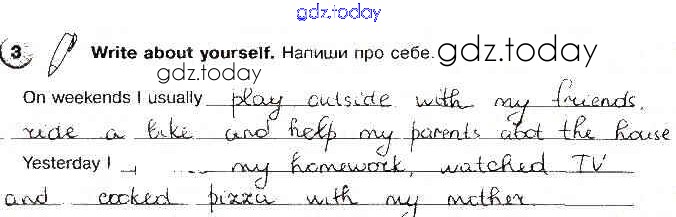 gdz.today
3 Write about yourself. Напиши про себе. gdz.today
gdz.today
On weekends I usually play outside with my friends,
ride a bike and help my parents abot the house
Yesterday I my homework, watched TV
and cooked pizza with my mother.